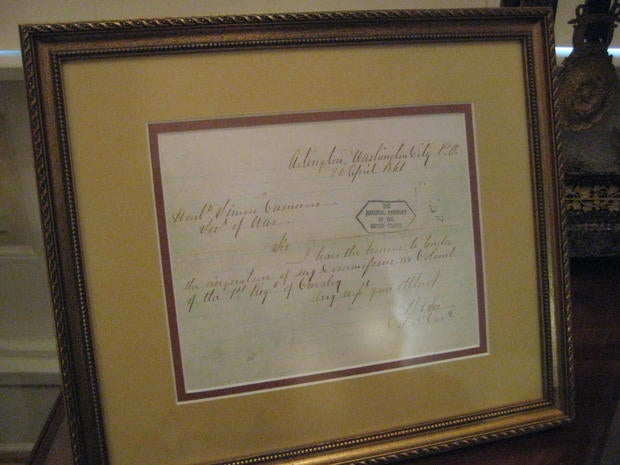 Arlington, Washington City P.O.
20 April 1861
Honble Simon Cameron
Secy of War
Sir
I have the honour to tender
the resignation of my Commission as Colonel
of the 1st Regt of Cavalry
Very respy your Obt Servt
R E Lee
Col 1st Cavy
THE
NATIONAL ARCHIVES
OF THE
UNITED STATES